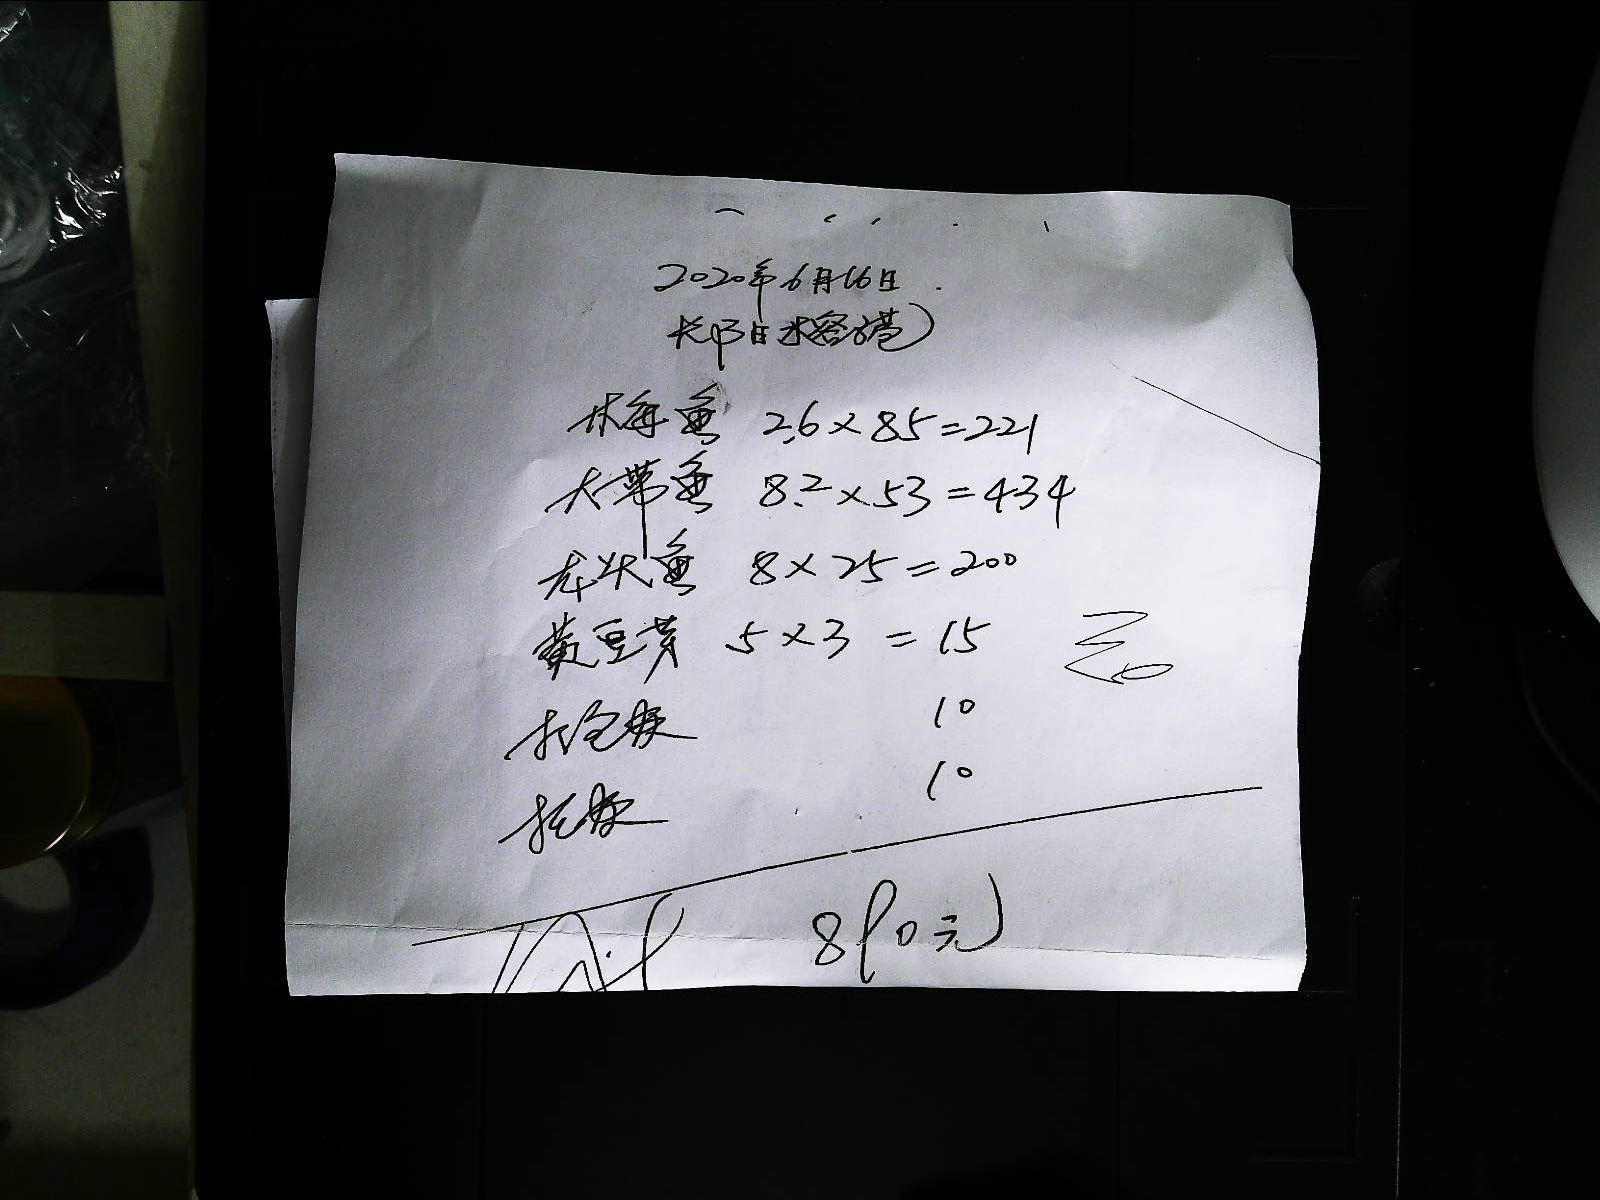 2020年6月16日
梅鱼 2.6×85=221
大带鱼 8.2×53=434
龙头鱼 8×25=200
黄豆芽 5×3=15
打包费 10
10
890元